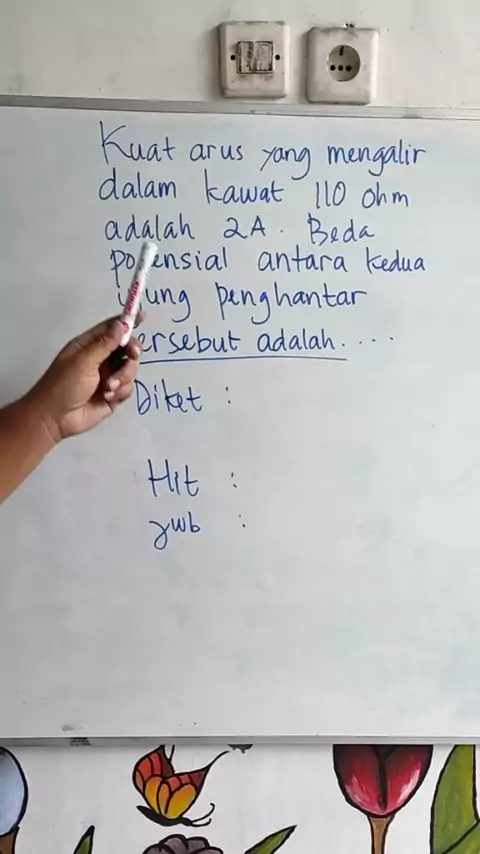 Kuat arus yang mengalir
dalam kawat 110 ohm
adalah 2A. Beda
potensial antara kedua
ujung penghantar
tersebut adalah. . . .
Diket :
Hit :
Jwb :